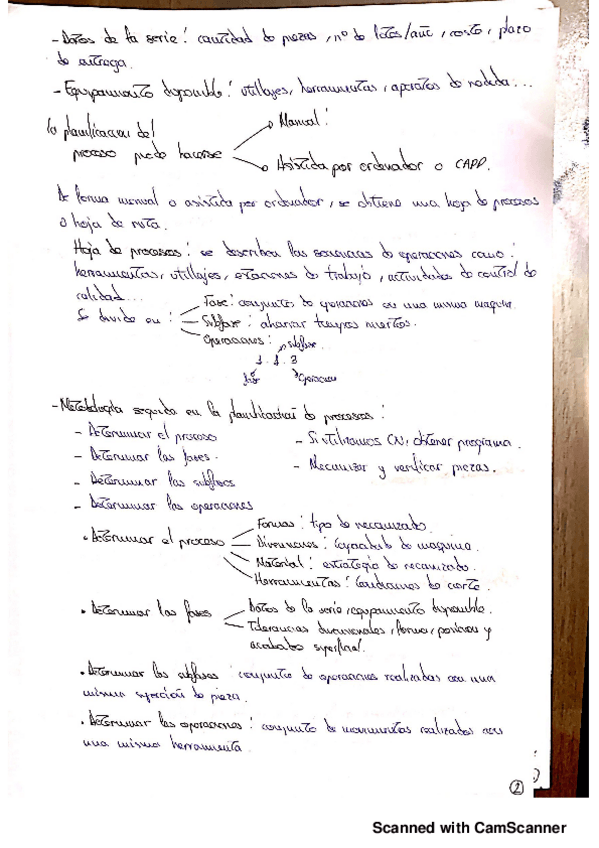 - Datos de la serie: cantidad de piezas, nº de lotes/año, costo, plazo
de entrega.
- Equipamiento disponible: utillajes, herramientas, aparatos de medida...
La planificacion del
proceso puede hacerse
Manual:
Asistida por ordenador o CAPP.
De forma manual o asistida por ordenador, se obtiene una hoja de procesos
o hoja de ruta.
Hoja de procesos: se describen las secuencias de operaciones como:
herramientas, utillajes, estaciones de trabajo, actividades de control de
calidad...
Se divide en:
Fase: conjunto de operaciones en una misma maquina.
Subfase: ahorrar tiempos muertos.
Operaciones:
subfase
1.1.3
fase
Operacion
- Metodología seguida en la planificación de procesos:
- Determinar el proceso
- Si utilizamos CN, obtener programa.
- Determinar las fases.
- Mecanizar y verificar piezas.
- Determinar las subfases
- Determinar las operaciones
• Determinar el proceso
Formas: tipo de mecanizado.
Dimensiones: Capacidad de maquina.
Material: estrategia de mecanizado.
Herramientas: Condiciones de corte.
• Determinar las fases
Datos de la serie, equipamiento disponible.
Tolerancias dimensionales, forma, posicion y
acabado superficial.
• Determinar las subfases: conjunto de operaciones realizadas con una
misma sujeción de pieza.
• Determinar las operaciones: conjunto de movimientos realizados con
una misma herramienta.
2
Scanned with CamScanner